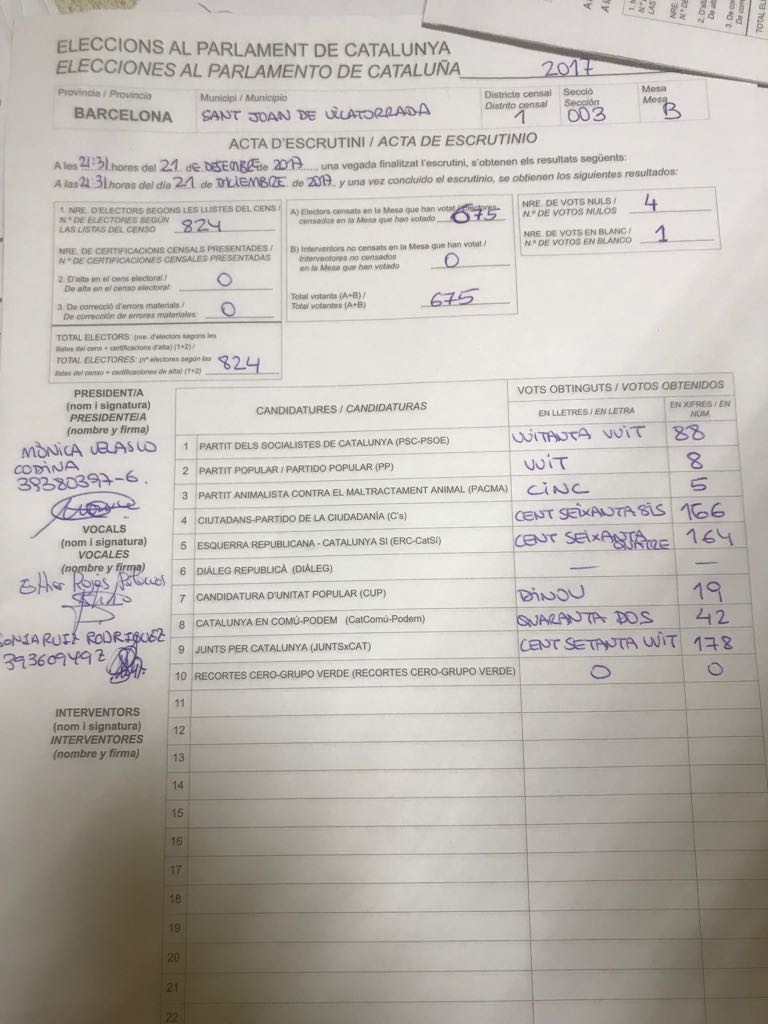 ELECCIONS AL PARLAMENT DE CATALUNYA
ELECCIONES AL PARLAMENTO DE CATALUÑA 2017
Provincia / Provincia
BARCELONA
Municipi / Municipio
SANT JOAN DE VILATORRADA
Districte censal
Distrito censal
1
Secció
Sección
003
Mesa
Mesa
B
ACTA D'ESCRUTINI / ACTA DE ESCRUTINIO
A les 21:31 hores del 21 de DESEMBRE de 2017, una vegada finalitzat l'escrutini, s'obtenen els resultats següents:
A las 21:31 horas del día 21 de DICIEMBRE de 2017, y una vez concluido el escrutinio, se obtienen los siguientes resultados:
1. NRE. D'ELECTORS SEGONS LES LLISTES DEL CENS /
N.º DE ELECTORES SEGÚN
LAS LISTAS DEL CENSO 824
NRE. DE CERTIFICACIONS CENSALS PRESENTADES /
N.º DE CERTIFICACIONES CENSALES PRESENTADAS
2. D'alta en el cens electoral /
De alta en el censo electoral: 0
3. De correcció d'errors materials /
De corrección de errores materiales: 0
TOTAL ELECTORS: (nre. d'electors segons les
llistes del cens + certificacions d'alta) (1+2) /
TOTAL ELECTORES: (nº electores según las
listas del censo + certificaciones de alta) (1+2) 824
A) Electors censats en la Mesa que han votat / Electores
censados en la Mesa que han votado 675
B) Interventors no censats en la Mesa que han votat /
Interventores no censados
en la Mesa que han votado 0
Total votants (A+B) /
Total votantes (A+B) 675
NRE. DE VOTS NULS /
N.º DE VOTOS NULOS 4
NRE. DE VOTS EN BLANC /
N.º DE VOTOS EN BLANCO 1
PRESIDENT/A
(nom i signatura)
PRESIDENTE/A
(nombre y firma)
MÒNICA VELASCO
CODINA
39380397-6.
VOCALS
(nom i signatura)
VOCALES
(nombre y firma)
Esther Rojas
SONIA RUIZ RODRIGUEZ
39360949Z
INTERVENTORS
(nom i signatura)
INTERVENTORES
(nombre y firma)
CANDIDATURES / CANDIDATURAS
VOTS OBTINGUTS / VOTOS OBTENIDOS
EN LLETRES / EN LETRA
EN XIFRES / EN NÚM.
1 PARTIT DELS SOCIALISTES DE CATALUNYA (PSC-PSOE) VUITANTA VUIT 88
2 PARTIT POPULAR / PARTIDO POPULAR (PP) VUIT 8
3 PARTIT ANIMALISTA CONTRA EL MALTRACTAMENT ANIMAL (PACMA) CINC 5
4 CIUTADANS-PARTIDO DE LA CIUDADANÍA (C's) CENT SEIXANTA SIS 166
5 ESQUERRA REPUBLICANA - CATALUNYA SI (ERC-CatSí) CENT SEIXANTA QUATRE 164
6 DIÀLEG REPUBLICÀ (DIÀLEG) — —
7 CANDIDATURA D'UNITAT POPULAR (CUP) DINOU 19
8 CATALUNYA EN COMÚ-PODEM (CatComú-Podem) QUARANTA DOS 42
9 JUNTS PER CATALUNYA (JUNTSxCAT) CENT SETANTA VUIT 178
10 RECORTES CERO-GRUPO VERDE (RECORTES CERO-GRUPO VERDE) 0 0
11
12
13
14
15
16
17
18
19
20
21
22